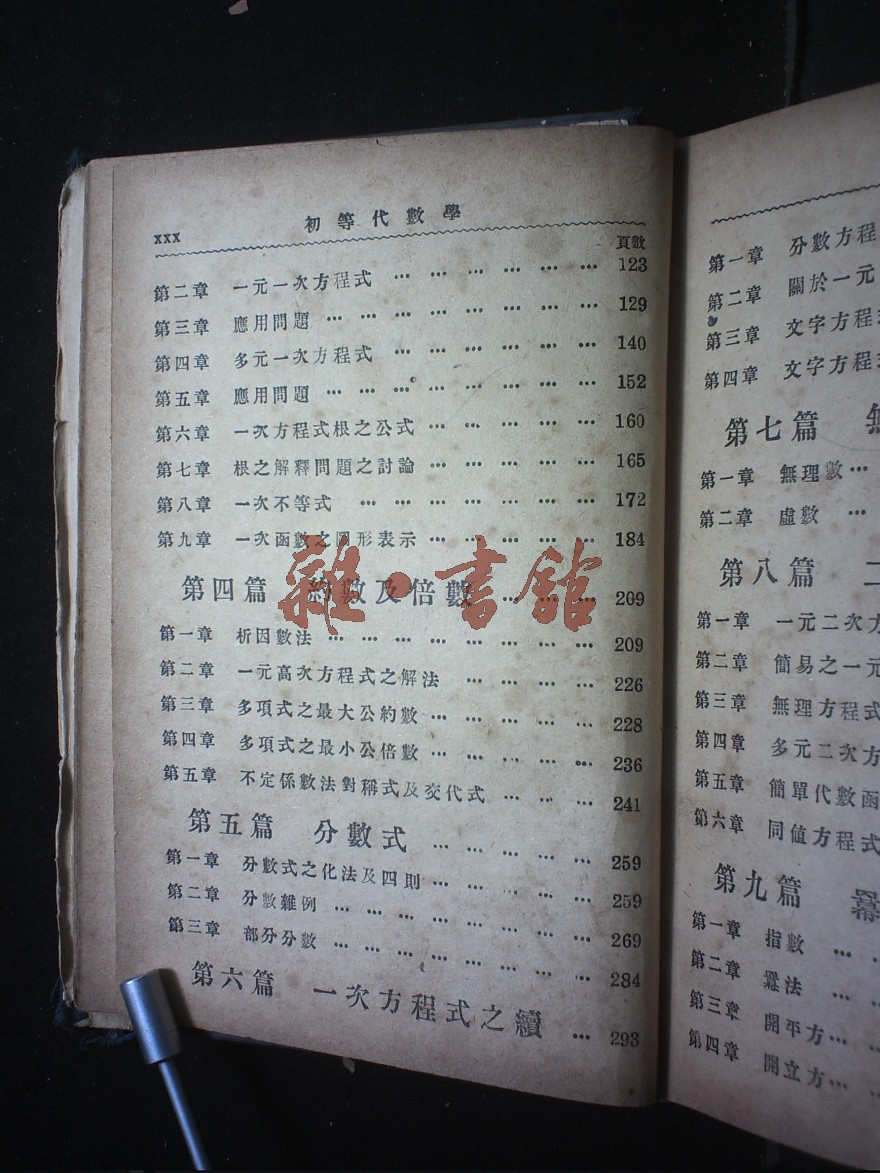 xxx 初等代數學
頁數
第二章 一元一次方程式 … … … … … … 123
第三章 應用問題 … … … … … … … … 129
第四章 多元一次方程式 … … … … … … 140
第五章 應用問題 … … … … … … … … 152
第六章 一次方程式根之公式 … … … … … 160
第七章 根之解釋問題之討論 … … … … … 165
第八章 一次不等式 … … … … … … … 172
第九章 一次函數之圖形表示 … … … … … 184
第四篇 約數及倍數 … … … 209
第一章 析因數法 … … … … … … … … 209
第二章 一元高次方程式之解法 … … … … 226
第三章 多項式之最大公約數 … … … … … 228
第四章 多項式之最小公倍數 … … … … … 236
第五章 不定係數法對稱式及交代式 … … … 241
第五篇 分數式 … … … … … 259
第一章 分數式之化法及四則 … … … … … 259
第二章 分數雜例 … … … … … … … … 269
第三章 部分分數 … … … … … … … … 284
第六篇 一次方程式之續 … 293
雜·書館
第一章 分數方程
第二章 關於一元
第三章 文字方程
第四章 文字方程
第七篇 無
第一章 無理數 …
第二章 虛數 …
第八篇 二
第一章 一元二次方
第二章 簡易之一元
第三章 無理方程式
第四章 多元二次方
第五章 簡單代數函
第六章 同值方程式
第九篇 冪
第一章 指數 …
第二章 冪法 …
第三章 開平方 …
第四章 開立方 …